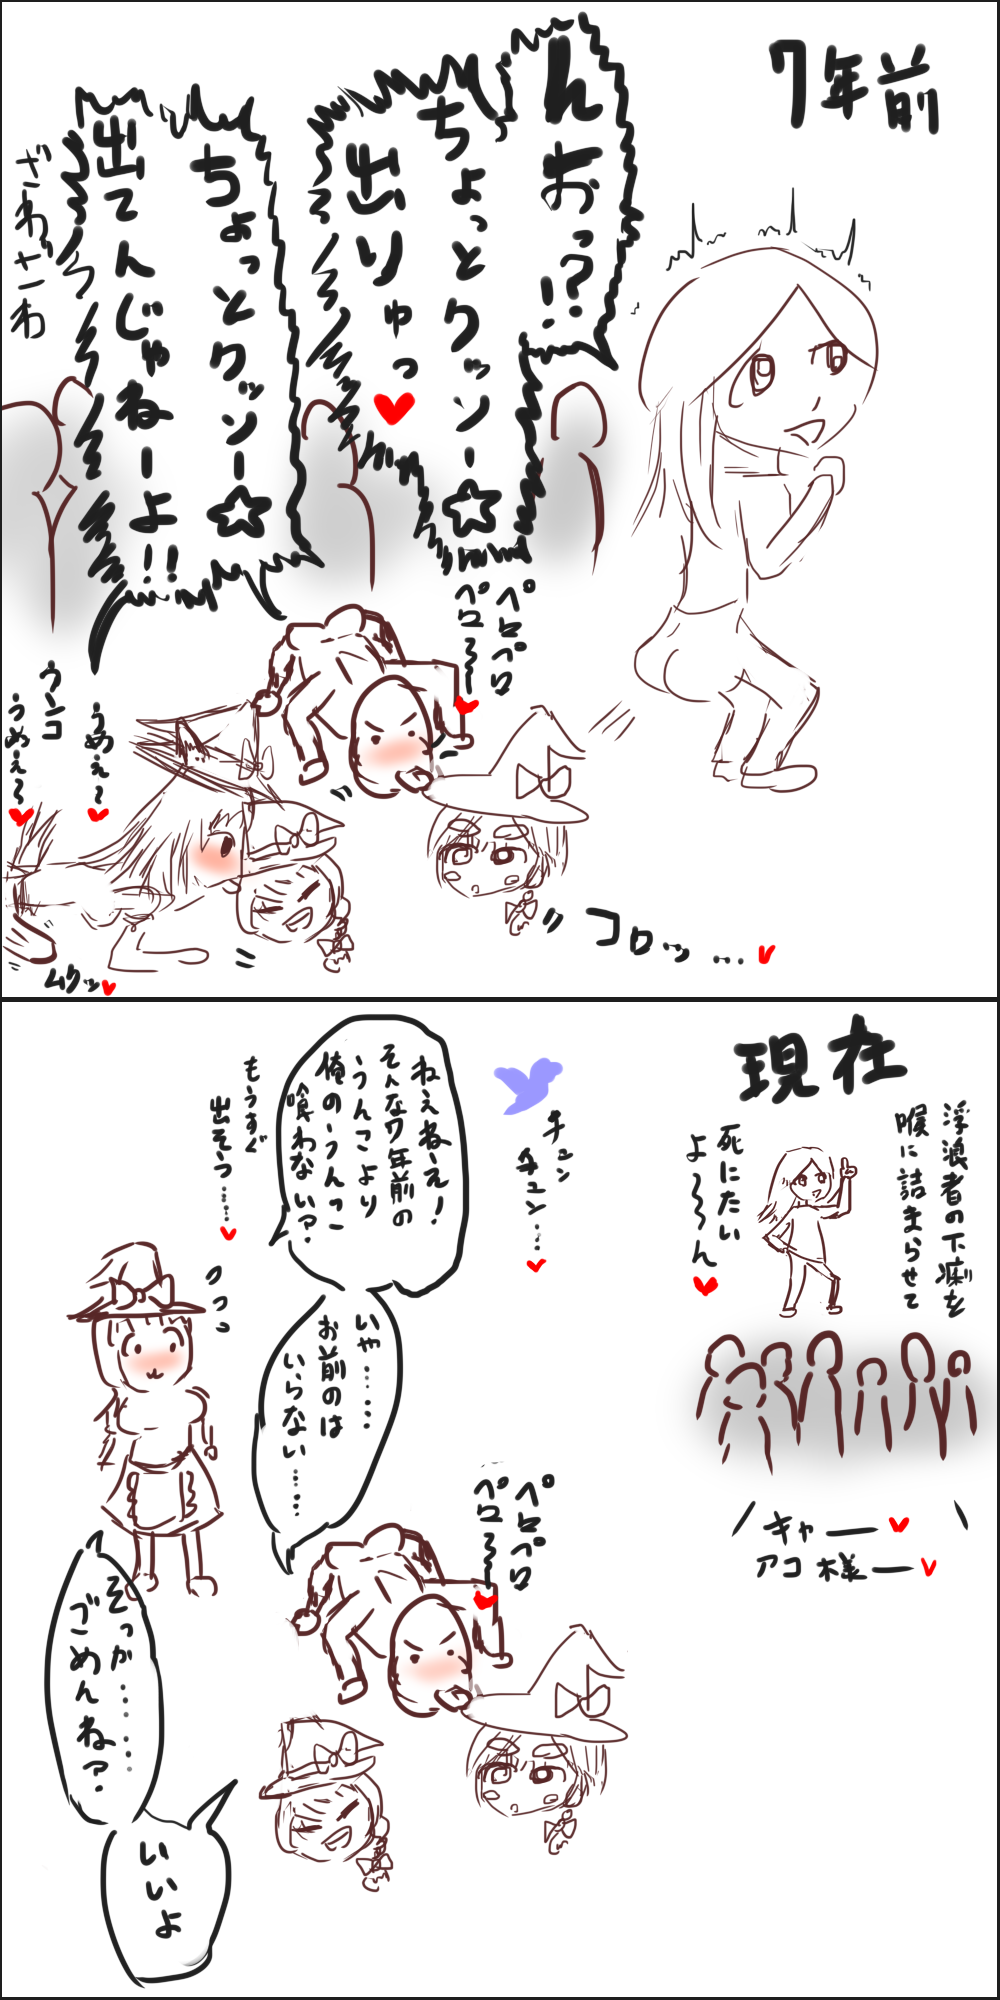 7年前
んおっ?!
ちょっとクッソー☆
出りゅっ♥
ちょっとクッソー☆
出てんじゃねーよ!!
ざわざわ
ペロペロ
ペロ～～♥
ウンコ
うめぇ～♥
うめぇ～♥
ムクッ♥
コロッ…♥
現在
浮浪者の下痢を
喉に詰まらせて
死にたい
よ～～ん♥
キャー♥
アコ様ー♥
チュン
チュン…♥
ねえねえ!
そんな7年前の
うんこより
俺のうんこ
喰わない?
もうすぐ
出そう……♥
いや……
お前のは
いらない……
ペロペロ
ペロ～～♥
そっか……
ごめんね?
いいよ